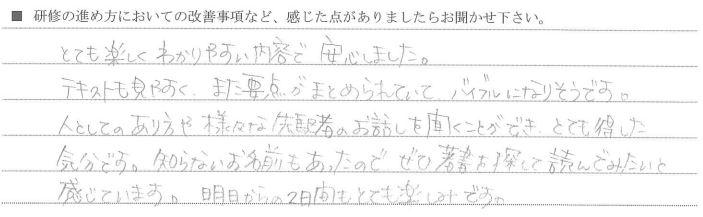 ■ 研修の進め方においての改善事項など、感じた点がありましたらお聞かせ下さい。
とても楽しくわかりやすい内容で安心しました。
テキストも見やすく、また要点がまとめられていてバイブルになりそうです。
人としてのあり方や様々な先駆者のお話しを聞くことができ、とても得した
気分です。知らないお名前もあったのでぜひ著書を探して読んでみたいと
感じています。明日からの2日間もとても楽しみです。